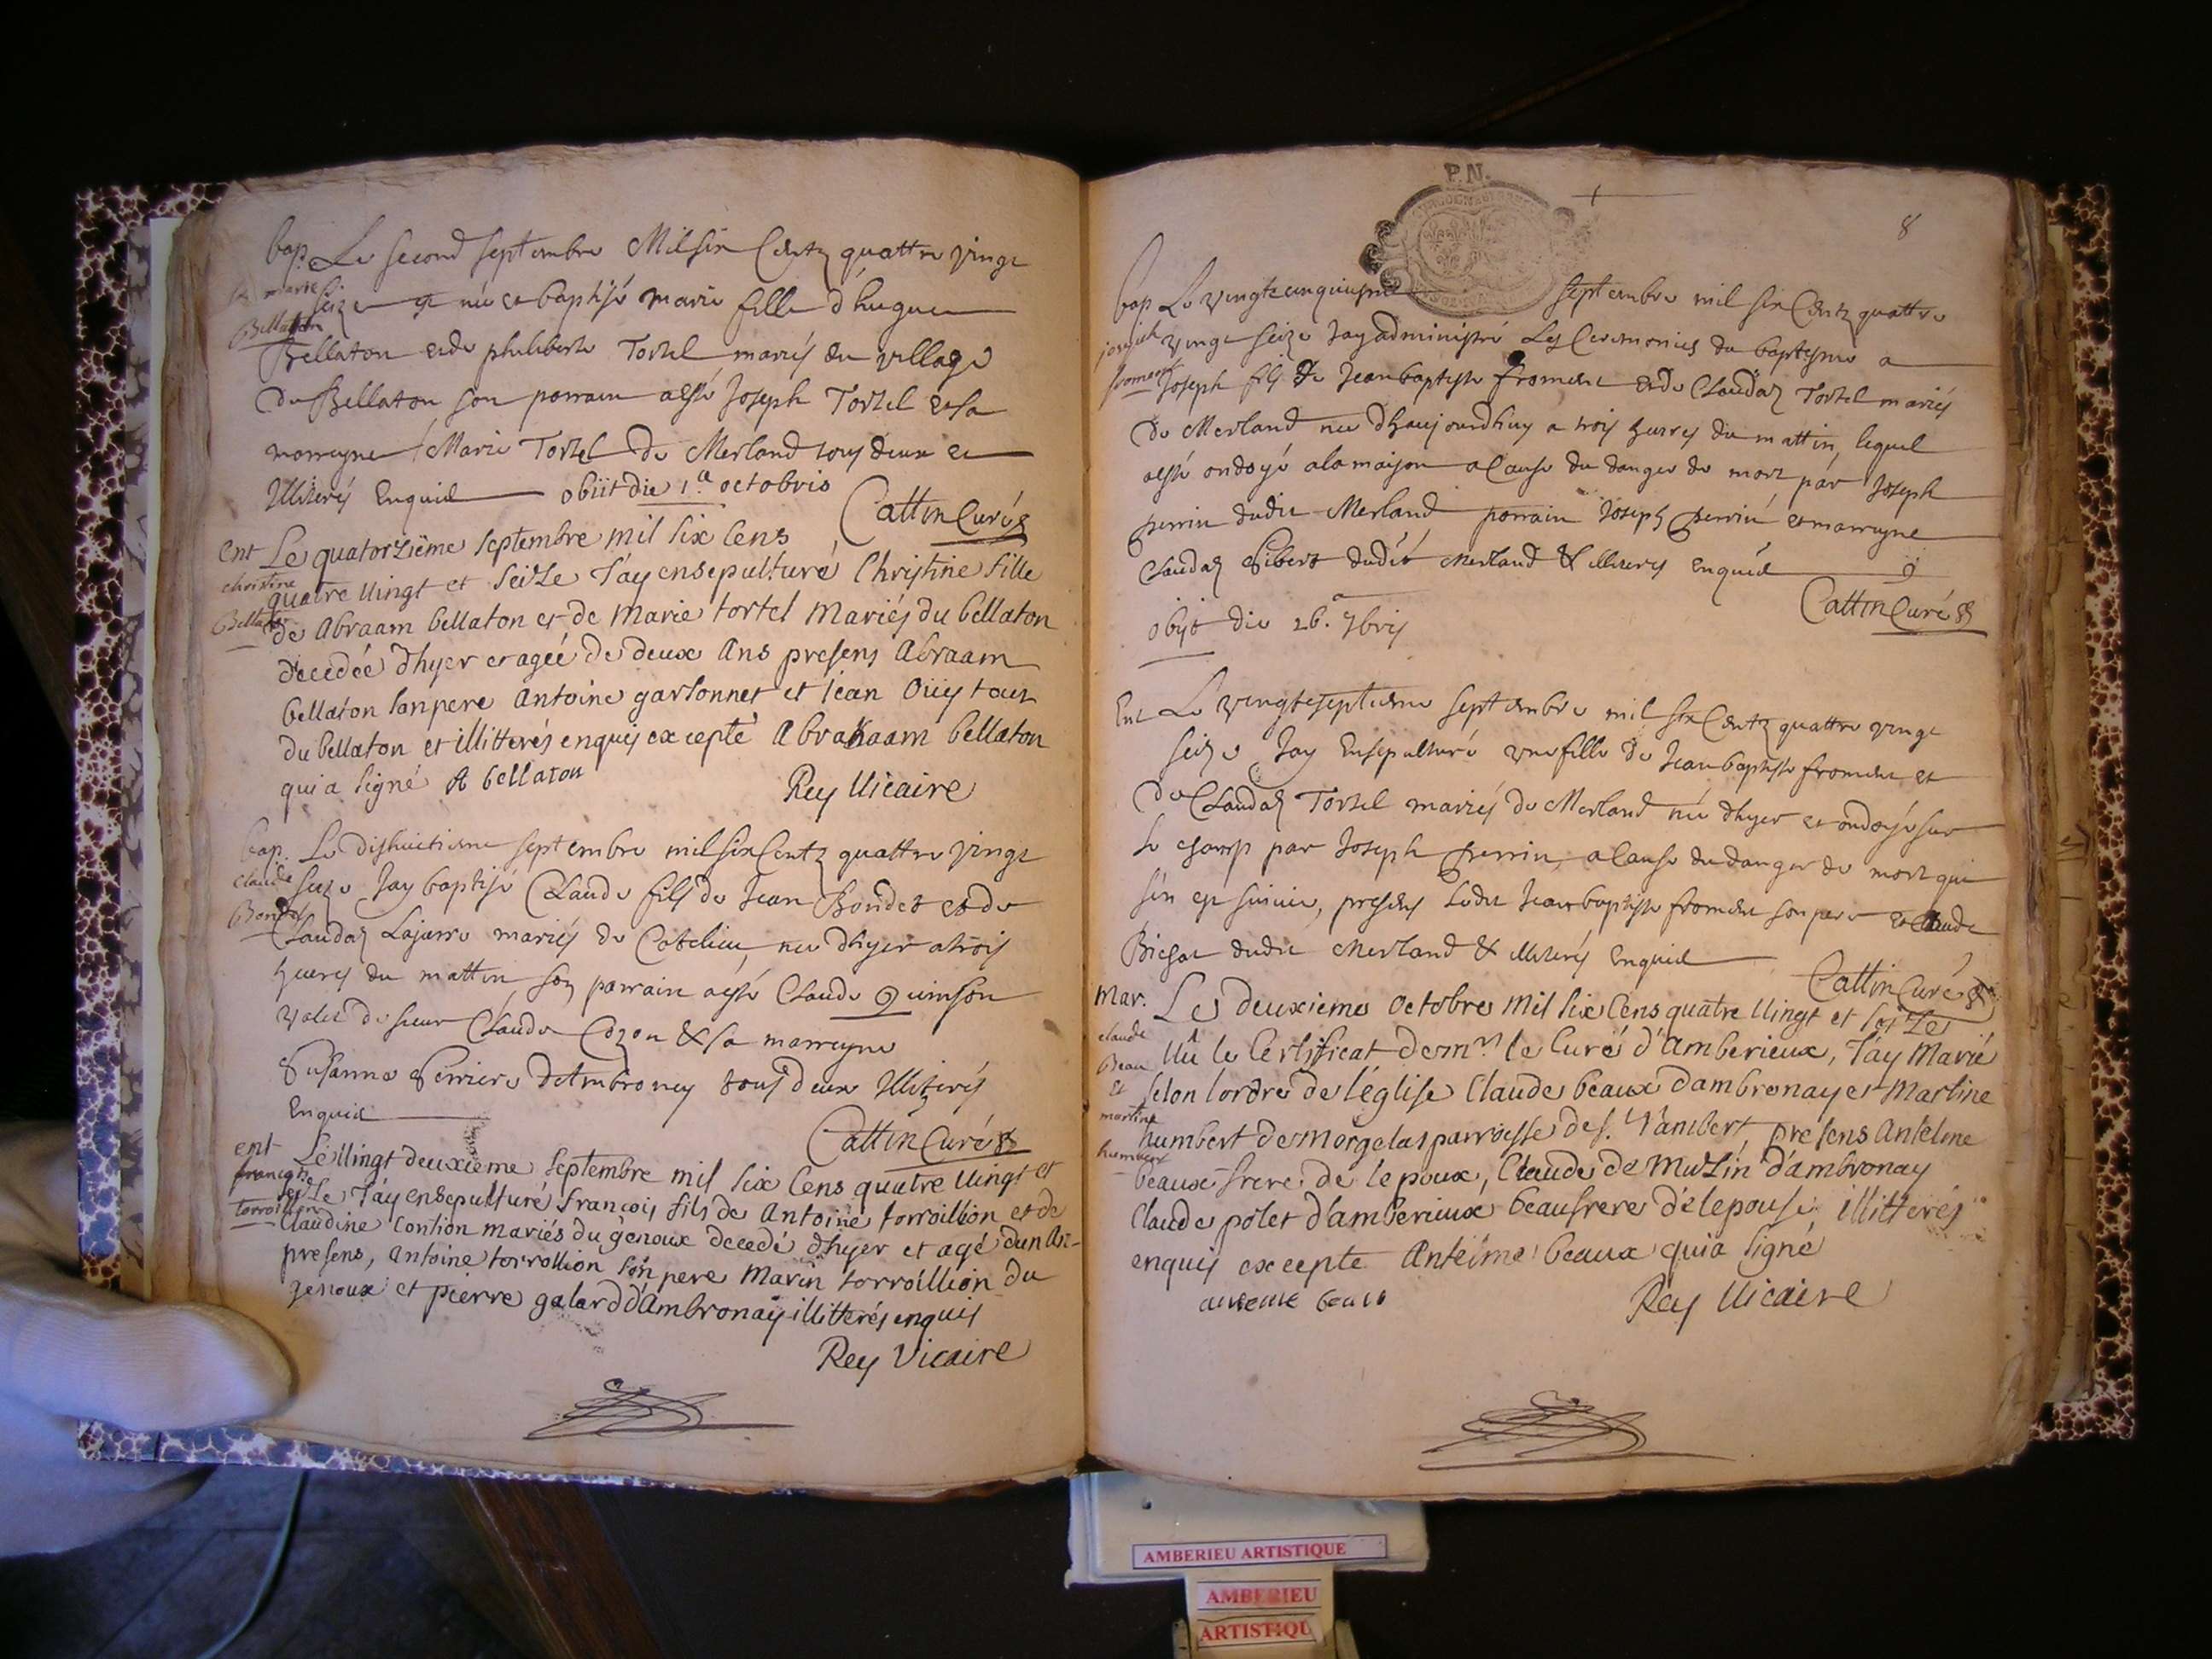 bap. Le second septembre Mil six Centz quattre vingt
marie
seize est née et baptisé marie fille d'hugue
Bellaton
Bellaton et de philiberte Tortel mariés du village
du Bellaton son parrain a esté Joseph Tortel et sa
marrayne Marie Tortel de Merland tous deux et
Illiterés Enquid obiit die 1.a octobris
Cattin Curé
ent Le quatorzième septembre mil six cens
christine
quatre vingt et seize j'ay ensepulturé Christine fille
Bellaton
de Abraam bellaton et de Marie tortel Mariés du bellaton
decedée d'hyer et agée de deux Ans presens Abraam
bellaton son pere Antoine garsonnet et jean Oüy tous
du bellaton et illitterés enquis excepté Abrahaam bellaton
qui a signé A bellaton
Rey Vicaire
bap. Le dishuictieme septembre mil six Centz quattre vingt
claude
seize Jay baptisé Claude fils de Jean Bondet et de
Bondet
Claudaz Lajarre mariés de Cotelieu, né d'hyer a trois
heures du mattin son parrain a esté Claude Quinson
valet de sieur Claude Cozon & sa marrayne
Susanne Perriere d'Ambroney tous deux Illiterés
Enquid
Cattin Curé
ent Le vingt deuxieme septembre mil six cens quatre vingt et
françois
seize J'ay ensepulturé François fils de Antoine torroillion et de
torroillion
Claudine Contion mariés du genoux decedé d'hyer et agé d'un An-
presens, antoine torrollion son pere Marin torroillion du
genoux et pierre galard d'Ambronay illitterés enquis
Rey Vicaire
P.N.
8
bap Le vingtcinquiesme septembre mil six Centz quattre
joseph
vingt seize Jay administré Les Ceremonies du baptesme a
froment
Joseph fils de Jean baptiste froment et de Claudaz Tortel mariés
de Merland né d'haujourdhuy a trois heures du mattin, lequel
a esté ondoyé a la maison a Cause du danger de mort par Joseph
perrin dudit Merland parrain Joseph perrin et marrayne
Claudaz Gibert dudit Merland & illiterés enquid
Cattin Curé
obijt die 26.a 7bris
Ent Le vingtseptieme septembre mil six Centz quattre vingt
seize Jay Ensepulturé une fille de Jean baptiste froment et
de Claudaz Tortel mariés de Merland née d'hyer et ondoyé sur
le champ par Joseph perrin, a Cause du danger de mort qui
s'en est suivie, presens Ledit Jean baptiste froment son pere et Claude
Bichat dudit Merland & illiterés Enquid
Cattin Curé
Mar. Le deuxieme Octobre Mil six Cens quatre vingt et seize
claude
Vû le Certificat de mr. le Curé d'Amberieux, J'ay Marié
Beau
selon l'ordre de l'église Claude beaux d'ambronay et Martine
et
martine
humbert de morgelas parroisse de s. Rambert, presens Antelme
humbert
beaux frere de lepoux, Claude de Muzin d'ambronay
Claude polet d'amberieux beaufrere de lepouse illitterés
enquis excepte Antelme beaux qui a signé
antelme beaus
Rey Vicaire
AMBERIEU ARTISTIQUE
AMBERIEU
ARTISTIQU